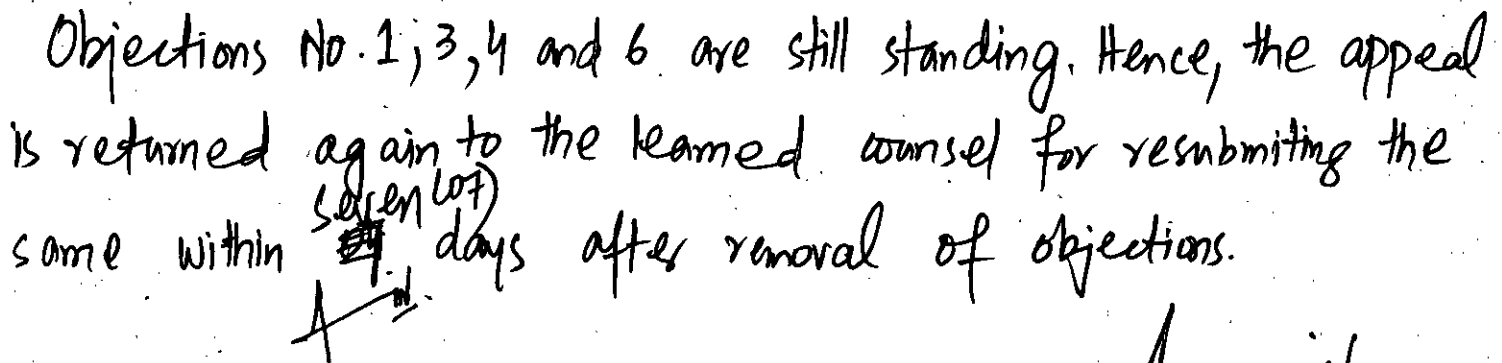 Objections No. 1, 3, 4 and 6 are still standing. Hence, the appeal
is returned again to the learned counsel for resubmiting the
seven (07)
same within days after removal of objections.